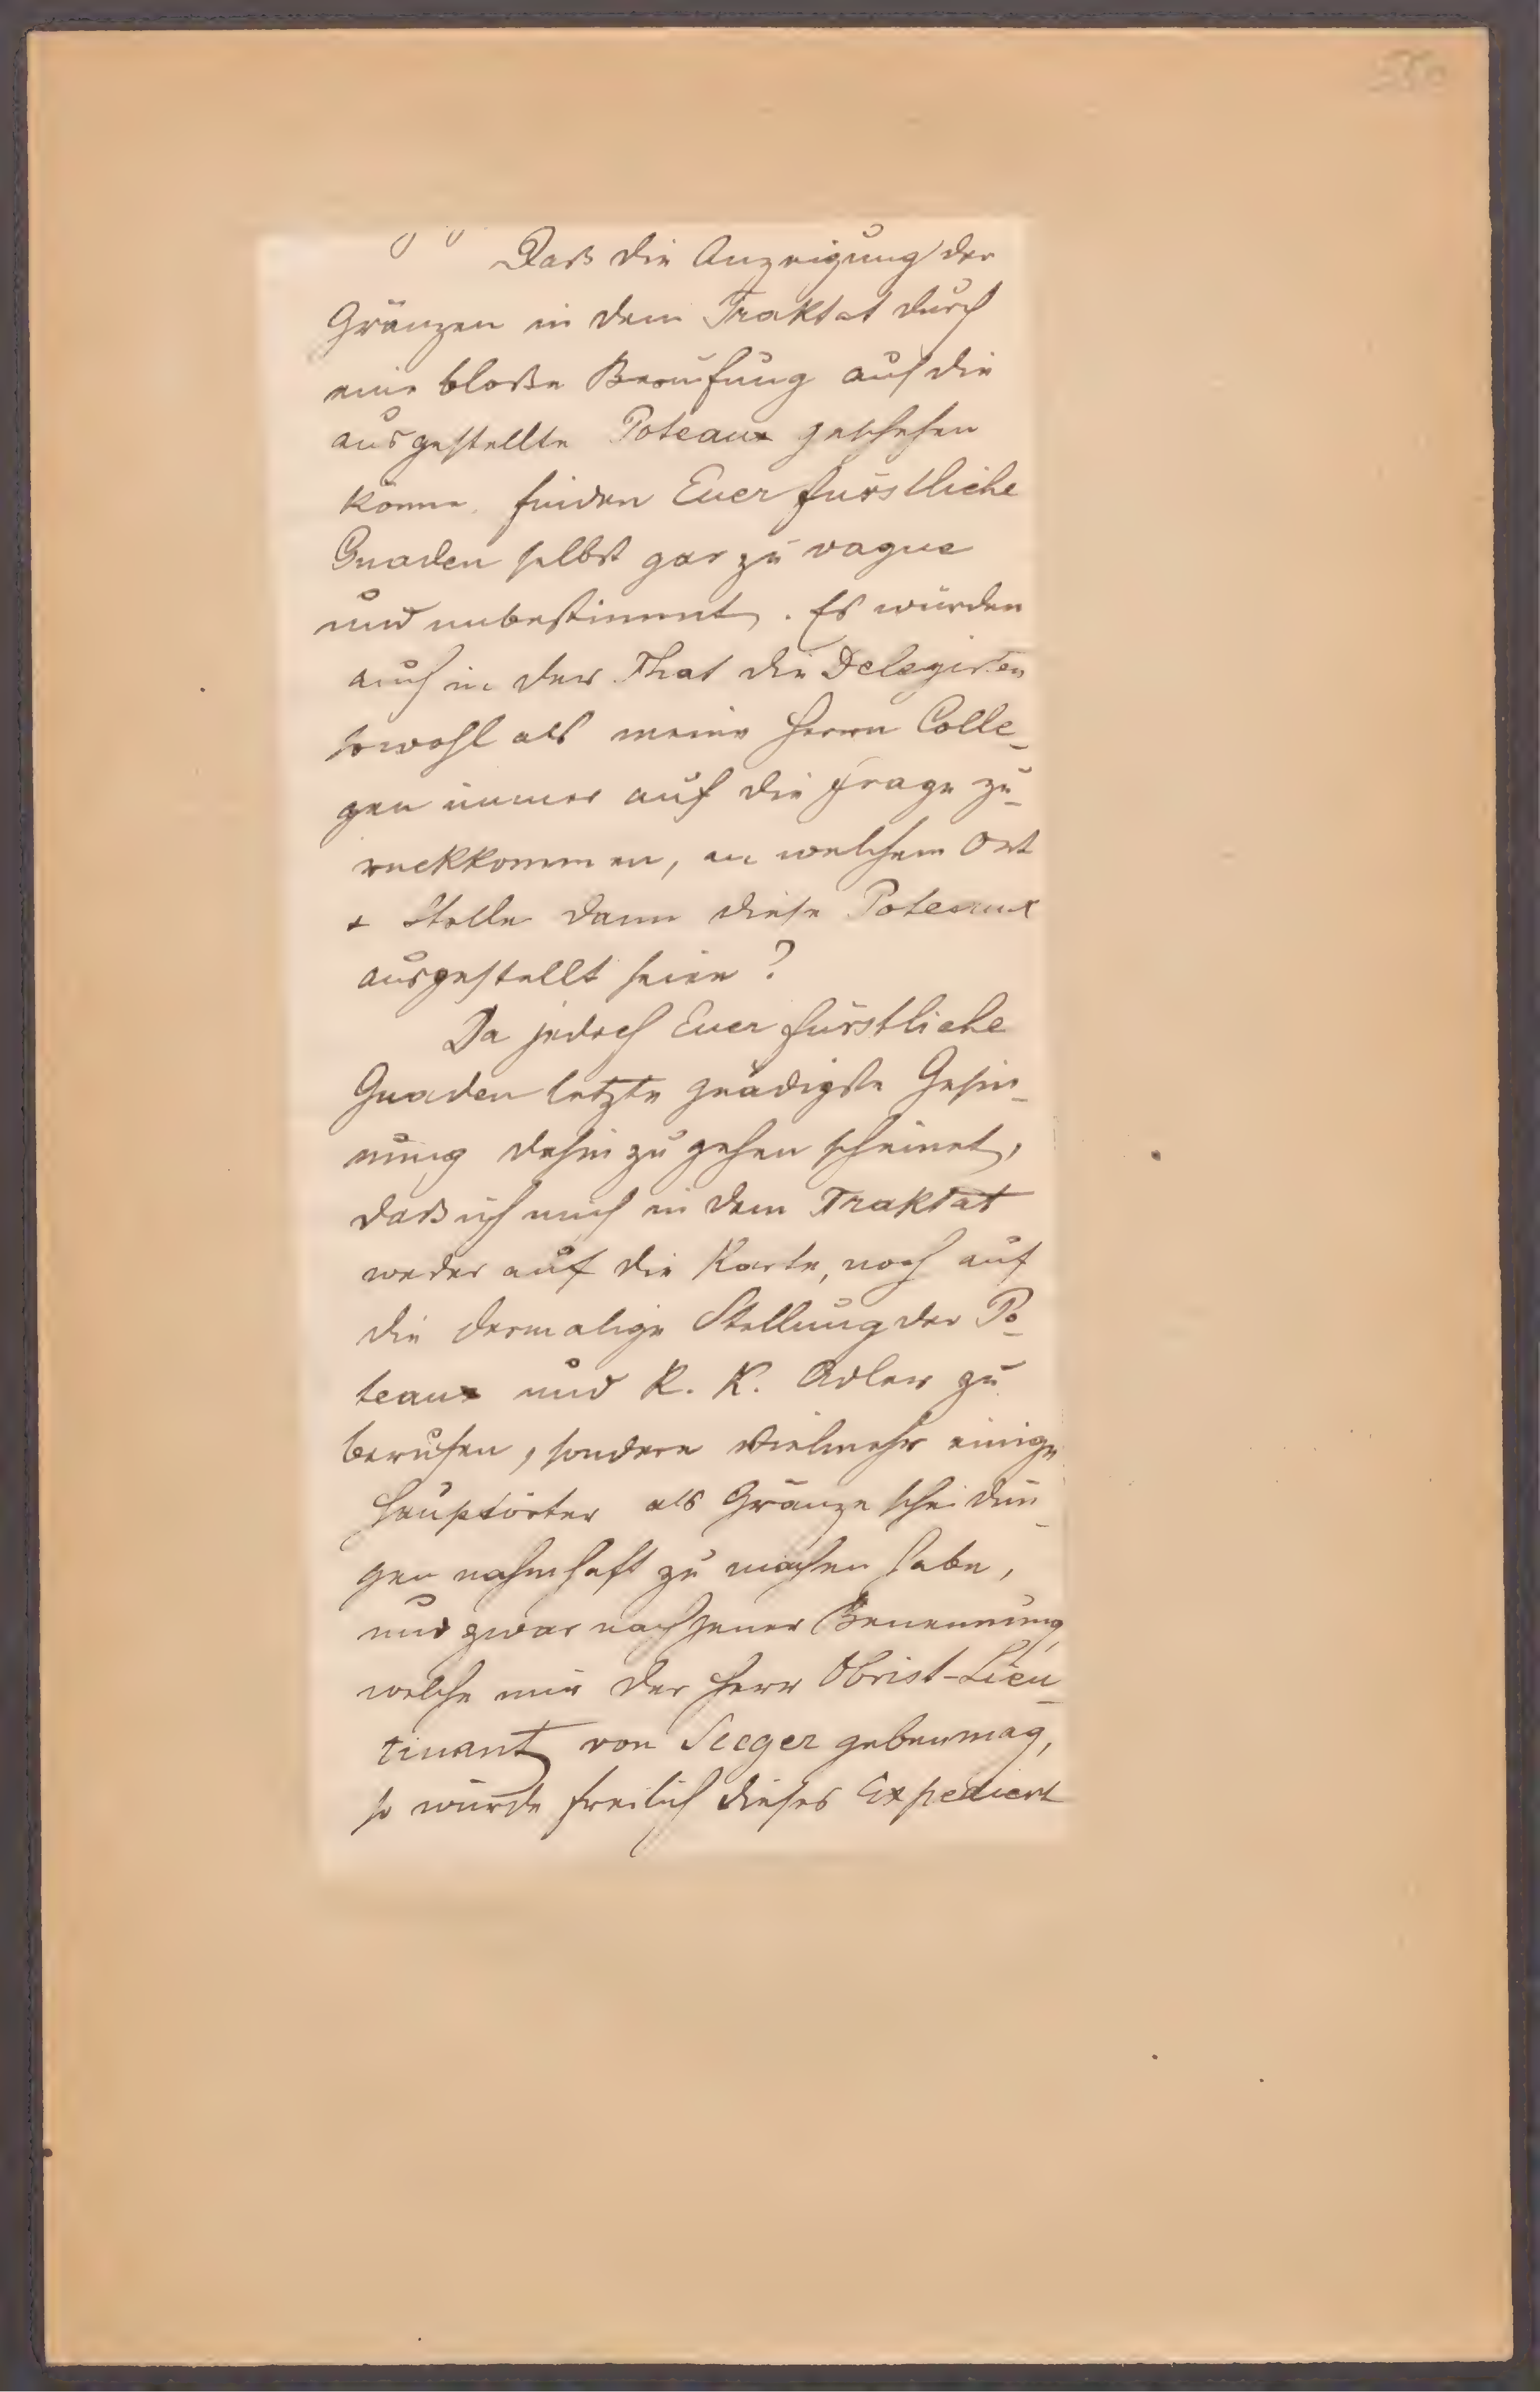 Daß die Anzeigung der
Gränzen in dem Traktat durch
eine bloße Berufung auf die
ausgestellte Poteaux geschehen
könne, finden Euer fürstliche
Gnaden selbst gar zu vague
und unbestimmt. Es würden
auch in der That die Delegirten
sowohl als meine Herrn Colle-
gen immer auf die Frage zu-
rückkommen, an welchem Ort
+ Stelle dann diese Poteaux
ausgestellt seien?
Da jedoch Euer fürstliche
Gnaden letzte gnädigste Gesin-
nung dahin zu gehen scheinet,
daß ich mich in dem Traktat
weder auf die Karte, noch auf
die dermalige Stellung der Po-
teaux und K. K. Adler zu
berufen, sondern vielmehr einige
Hauptörter als Gränzscheidun-
gen nahmhaft zu machen habe,
und zwar nach jener Benennung,
welche mir der Herr Obrist-Lieu-
tinant von Seeger geben mag,
so würde freilich dieses Expedient